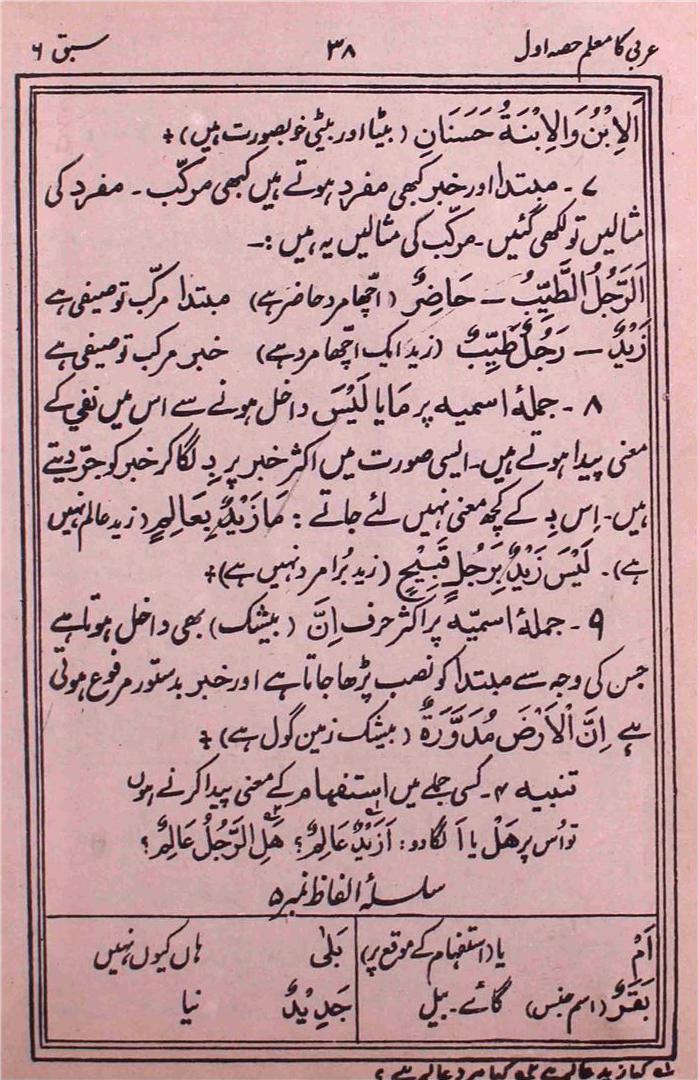 عربی کا معلم حصہ اول ۳۸ سبق ۶
اَلْاِبْنُ وَالْاِبْنَةُ حَسَنَانِ (بیٹا اور بیٹی خوبصورت ہیں)+
۷ - مبتدا اور خبر کبھی مفرد ہوتے ہیں کبھی مرکّب - مفرد کی
مثالیں تو لکھی گئیں - مرکّب کی مثالیں یہ ہیں :-
اَلرَّجُلُ الطَّيِّبُ - حَاضِرٌ (اچّھا مرد حاضر ہے) مبتدا مرکّب توصیفی ہے
زَيْدٌ - رَجُلٌ طَيِّبٌ (زید ایک اچّھا مرد ہے) خبر مرکب توصیفی ہے
۸ - جملۂ اسمیہ پر مَا یا لَيْسَ داخل ہونے سے اس میں نفی کے
معنی پیدا ہوتے ہیں - ایسی صورت میں اکثر خبر پر بِ لگا کر خبر کو جرّ دیتے
ہیں - اِس بِ کے کچھ معنی نہیں لئے جاتے : مَا زَيْدٌ بِعَالِمٍ (زید عالم نہیں
ہے) - لَيْسَ زَيْدٌ بِرَجُلٍ قَبِيْحٍ (زید بُرا مرد نہیں ہے)+
۹ - جملۂ اسمیّہ پر اکثر حرف اِنَّ (بیشک) بھی داخل ہوتا ہے
جس کی وجہ سے مبتدا کو نصب پڑھا جاتا ہے اور خبر بدستور مرفوع ہوتی
ہے اِنَّ الْاَرْضَ مُدَوَّرَةٌ (بیشک زمین گول ہے)+
تنبیہ ۴ - کسی جملے میں استفہام کے معنی پیدا کرنے ہوں
تو اُس پر هَلْ یا اَ لگا دو : اَزَيْدٌ عَالِمٌ؟ هَلِ الرَّجُلُ عَالِمٌ؟
سلسلۂ الفاظ نمبر ۵
اَمْ یا (استفہام کے موقع پر) بَلٰى ہاں کیوں نہیں
بَقَرٌ (اسم جنس) گائے - بیل جَدِيْدٌ نیا
لہ کیا زید عالم ہے ۲ہ کیا مرد عالم ہے ؟